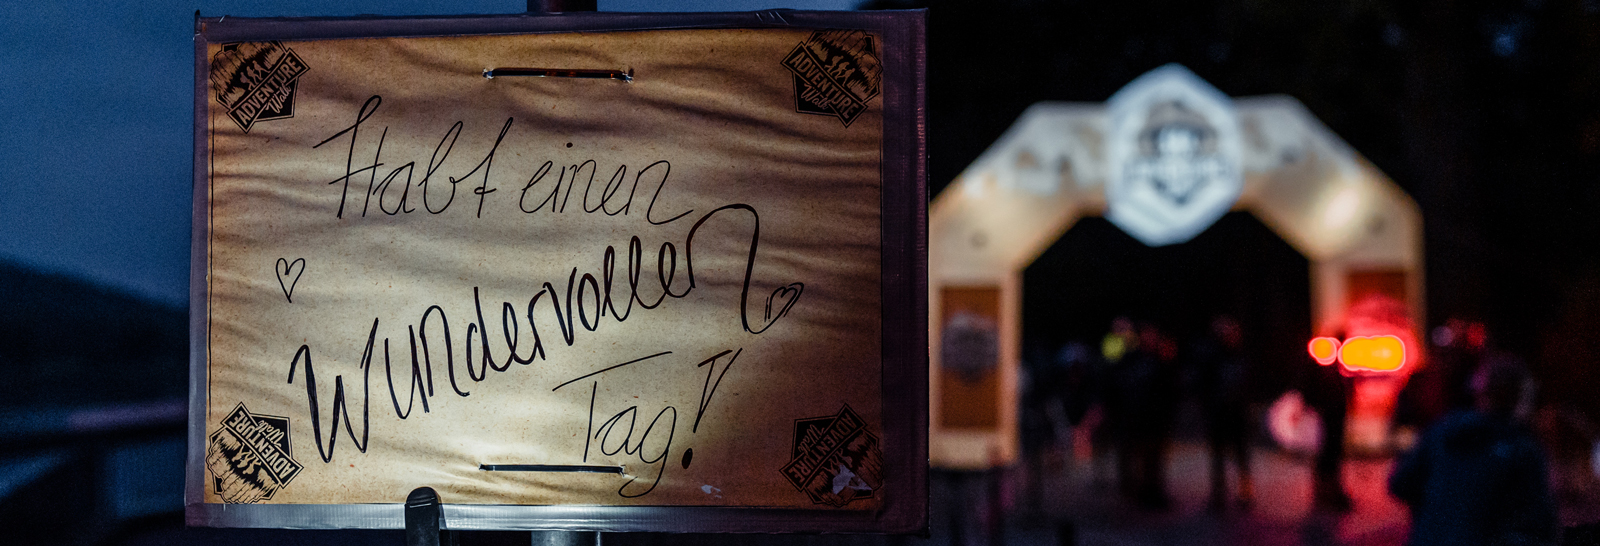 ADVENTURE
Walk
ADVENTURE
Walk
Habt einen
Wundervollen
Tag!
ADVENTURE
Walk
ADVENTURE
Walk